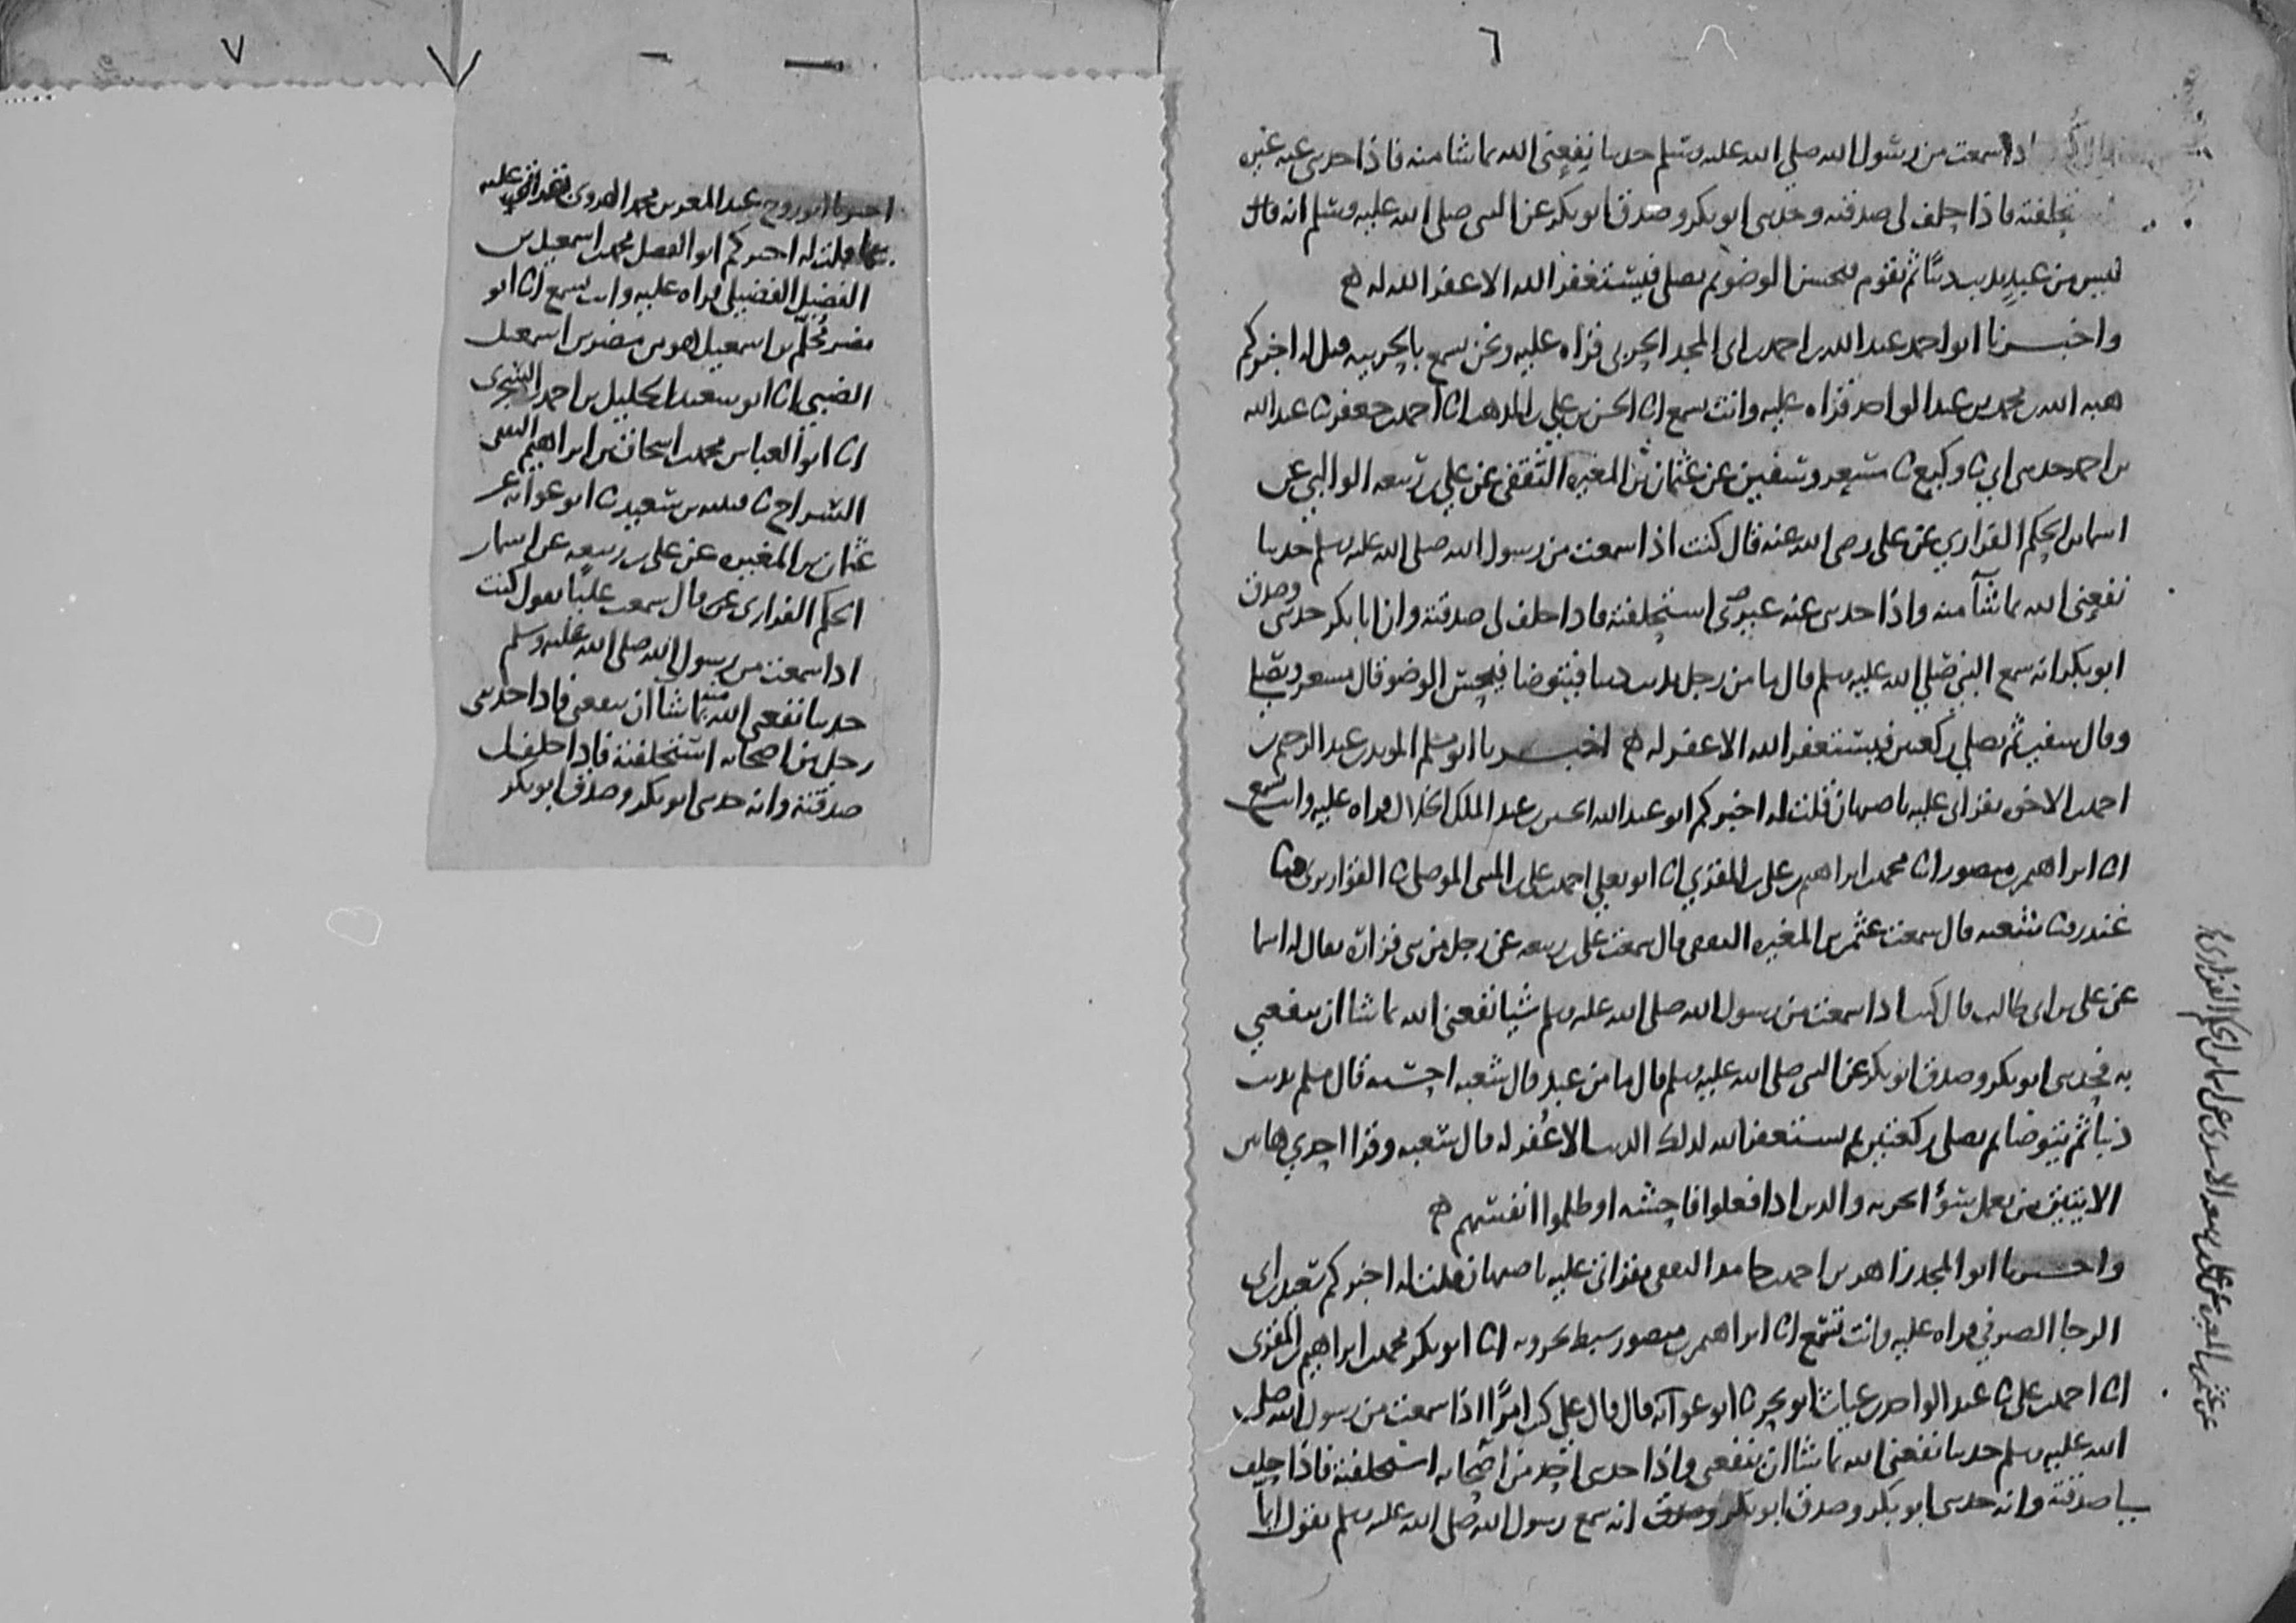 اذا سمعت من رسول الله صلى الله عليه وسلم حديثا ينفعني الله بما شا منه فاذا حدثني عنه غيره
فاذا حلف لي صدقته وحدثني ابو بكر وصدق ابو بكر عن النبي صلى الله عليه وسلم انه قال
ليس من عبد يذنب ذنبا ثم يقوم فيحسن الوضو ثم يصلي فيستغفر الله الا غفر الله له
واخبرنا ابو احمد عبد الله بن احمد بن ابي المجد الحربي قراه عليه ونحن نسمع بالحربيه قيل له اخبركم
هبه الله بن محمد بن عبد الواحد قراه عليه وانت تسمع انا الحسن بن علي بن المذهب انا احمد بن جعفر نا عبد الله
بن احمد حدثني ابي نا وكيع نا مسعر وسفين عن عثمان بن المغيره الثقفي عن علي بن ربيعه الوالبي عن
اسما بن الحكم الفزاري عن علي رضي الله عنه قال كنت اذا سمعت من رسول الله صلى الله عليه وسلم حديثا
نفعني الله بما شآ منه واذا حدثني عنه غيري استحلفته فاذا حلف لي صدقته وان ابا بكر حدثني وصدق
ابو بكر انه سمع النبي صلى الله عليه وسلم قال ما من رجل يذنب ذنبا فيتوضا فيحسن الوضو قال مسعر ويصلي
وقال سفين ثم يصلي ركعتين فيستغفر الله الا غفر له اخبرنا ابو مسلم المويد بن عبد الرحيم بن
احمد بن الاخوه بقراتي عليه باصبهان قلت له اخبركم ابو عبد الله الحسين بن عبد الملك الخلال قراه عليه وانت تسمع
انا ابراهيم بن منصور انا محمد بن ابراهيم بن علي بن المقري انا ابو يعلي احمد بن علي بن المثنى الموصلي نا القواريري نا
غندر نا شعبه قال سمعت عثمن بن المغيره الثقفي قال سمعت علي بن ربيعه عن رجل من بني فزاره يقال له اسما
عن علي بن ابي طالب قال كنت اذا سمعت من رسول الله صلى الله عليه وسلم شيا نفعني الله بما شا ان ينفعني
به فحدثني ابو بكر وصدق ابو بكر عن النبي صلى الله عليه وسلم قال ما من عبد قال شعبه احسبه قال مسلم يذنب
ذنبا ثم يتوضا ثم يصلي ركعتين ثم يستغفر الله لذلك الذنب الا غفر له قال شعبه وقرا احدي هاتين
الايتين من يعمل سؤا يجز به والذين اذا فعلوا فاحشه او ظلموا انفسهم
واخبرنا ابو المجد زاهر بن احمد بن حامد الثقفي بقراتي عليه باصبهان قلت له اخبركم سعيد بن ابي
الرجا الصيرفي قراه عليه وانت تسمع انا ابراهيم بن منصور سبط بحرويه انا ابو بكر محمد بن ابراهيم بن المقري
انا احمد بن علي نا عبد الواحد بن غياث ابو بحر نا ابو عوانه قال قال علي كنت امرًا اذا سمعت من رسول الله صلى
الله عليه وسلم حديثا نفعني الله بما شا ان ينفعني واذا حدثني احد من اصحابه استحلفته فاذا حلف
لي صدقته وانه حدثني ابو بكر وصدق ابو بكر انه سمع رسول الله صلى الله عليه وسلم يقول
عن عثمن بن المغيره عن علي بن ربيعه الاسدي عن اسما بن الحكم الفزاري
اخبرنا ابو روح عبد المعز بن محمد الهروي بقراتي عليه
بها قلت له اخبركم ابو الفضل محمد بن اسمعيل بن
الفضيل الفضيلي قراه عليه وانت تسمع انا ابو
مضر محلم بن اسمعيل هو بن مضر بن اسمعيل
الضبي انا ابو سعيد الخليل بن احمد السجزي
انا ابو العباس محمد بن اسحاق بن ابراهيم الثقفي
السراج نا قتيبه بن سعيد نا ابو عوانه عن
عثمان بن المغيره عن علي بن ربيعه عن اسما بن
الحكم الفزاري قال سمعت عليا يقول كنت
اذا سمعت من رسول الله صلى الله عليه وسلم
حديثا نفعني الله منه بما شآ ان ينفعني فاذا حدثني
رجل من اصحابه استحلفته فاذا حلف لي
صدقته وانه حدثني ابو بكر وصدق ابو بكر